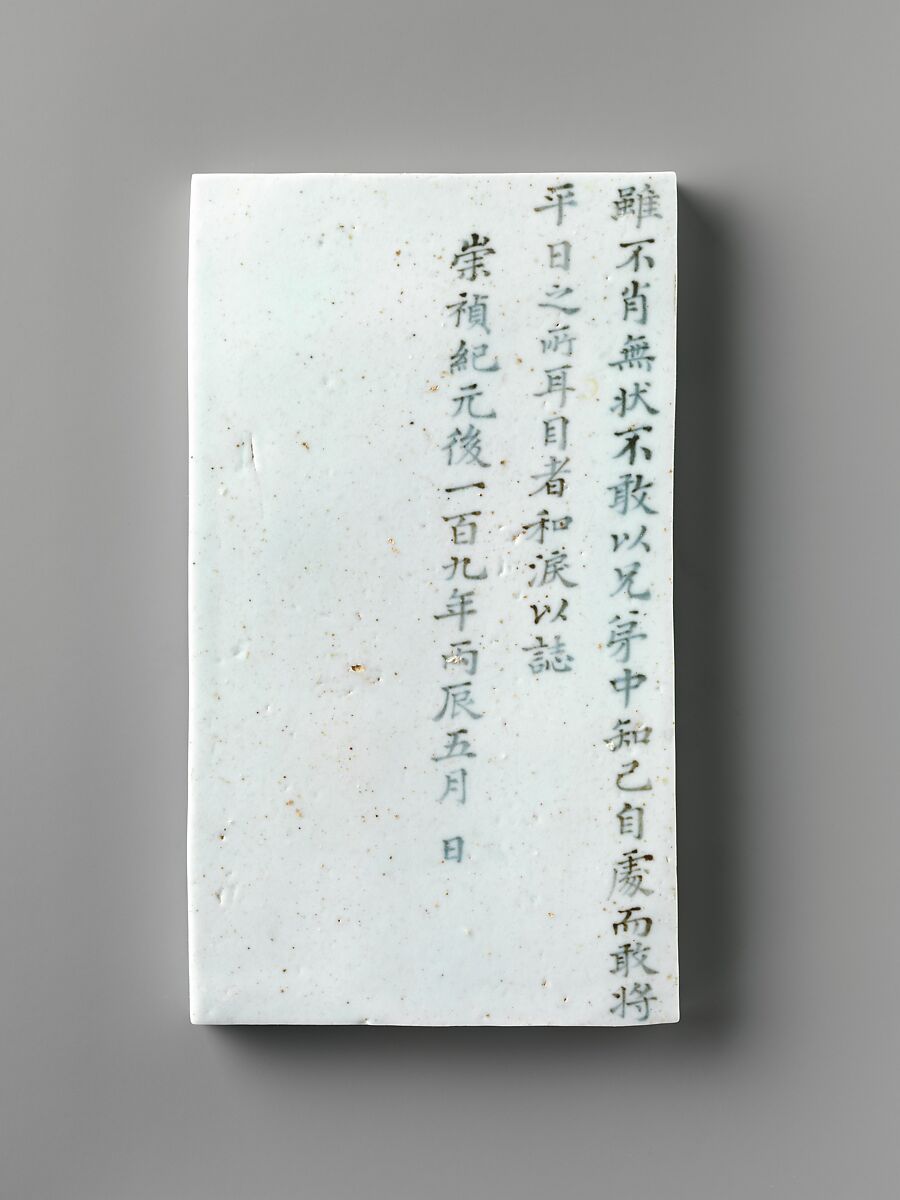 雖不肖無状不敢以兄弟中知己自處而敢将
平日之所耳目者和淚以誌
崇禎紀元後一百九年丙辰五月 日